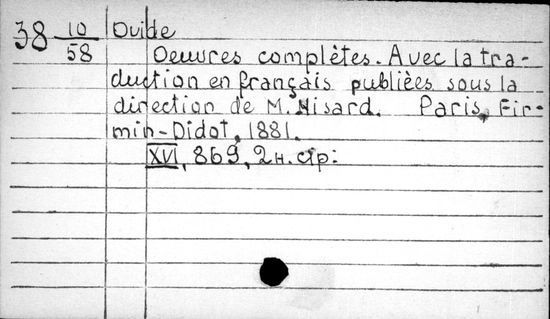 38 10/58 Ovide
Oeuvres complètes. Avec la tra-
duction en français publiées sous la
direction de M. Nisard. Paris, Fir-
min-Didot, 1881.
XVI, 869, 2н. стр: